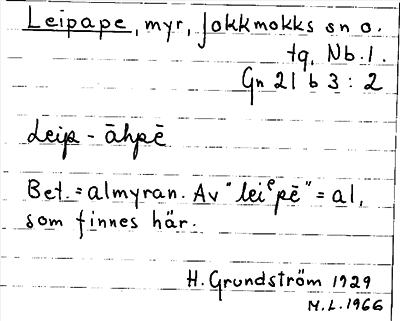 Leipape, myr, Jokkmokks sn o.
tg, Nb.l.
Gn 21 b 3 : 2
Leip - āhpē
Bet. = almyran. Av "leiᵉpē" = al,
som finnes här.
H. Grundström 1929
M.L. 1966